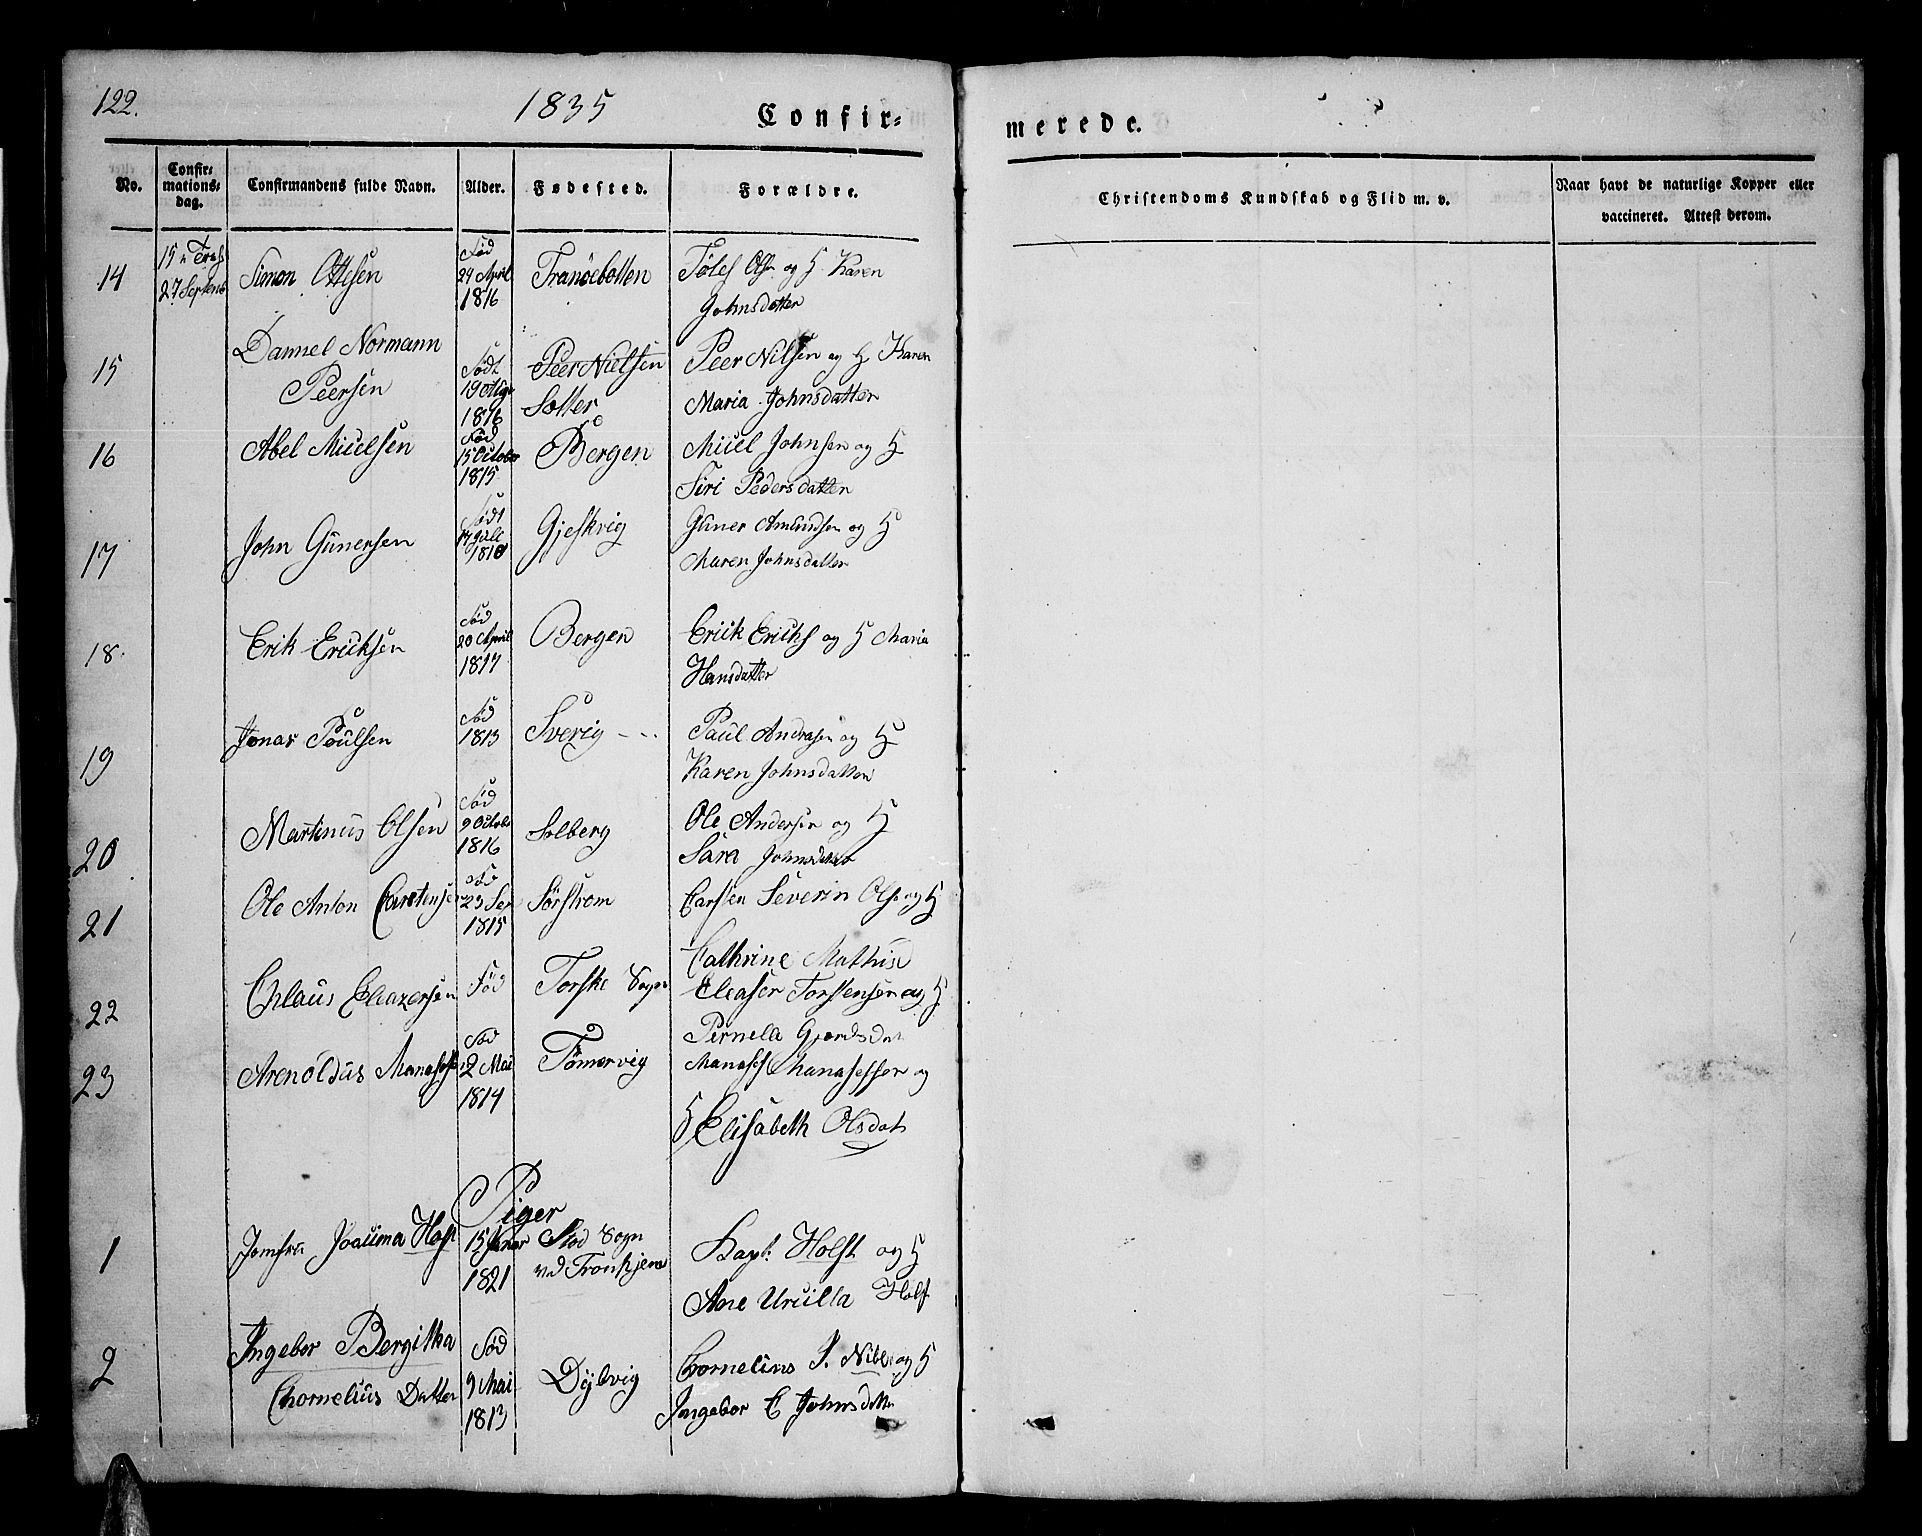 122.
1835
Confir-
merede.
No.
Confir-
mations-
dag.
Confirmandens fulde Navn.
Alder.
Fødested.
Forældre.
Christendoms Kundskab og Flid m. v.
Naar havt de naturlige Kopper eller
vaccineret. Attest derom.
14
27 Septemb
Simon Ottesen
Fød
29 April
1816
Tranöebotten
Olsn og H Karen
Johnsdatter
15
Daniel Normann
Peersen
Født
19 Aug
1816
Peer Nielsen
Sotter
Peer Nilsen og H Karen
Maria Johnsdatter
16
Abel Micelsen
Fød
15 October
1815
Bergen
Micel Johnsen og H
Siri Pedersdatter
17
John Gunersen
Født
1818
Gjeskvig
Guner Amundsen og H
Maren Johnsdatter
18.
Erik Ericksen
Fød
20 April
1817
Bergen
Erick Ericks og H Maria
Hansdatter
19
Jonas Poulsen
Fød
1813
Sverig - - -
Paul Andrasen og H
Karen Johnsdatter
20
Martinus Olsen
Fød
9 Octob
1816
Solberg
Ole Andersen og H
Sara Johnsdatter
21
Ole Anton Carstensen
Fød
23 Sep
1815
Sörstrom
Carsten Severin Ols og H
Cathrine Mathisd
22
Chlaus Eliazersen
Fød
Torske Sogn
Eleaser Torstensen og H
Pernela Gjordsdat
23
Arenoldus Manases
Fød
2 Mai
1814
Tömervig
Manases Manasessen og
H Elisabeth Olsdat
Piger
1
Jomfru Joacima Holst
15 Janar
1821
Stod Sogn
ved Tronhjem
Kapt. Holst og H
Ane Urcilla Holst
2
Ingebor Bergitha
Chornelius Datter
Fød
9 Mai
1813
Dyhvig
Chornelius P. Nils og H
Ingebor E Johnsdatter